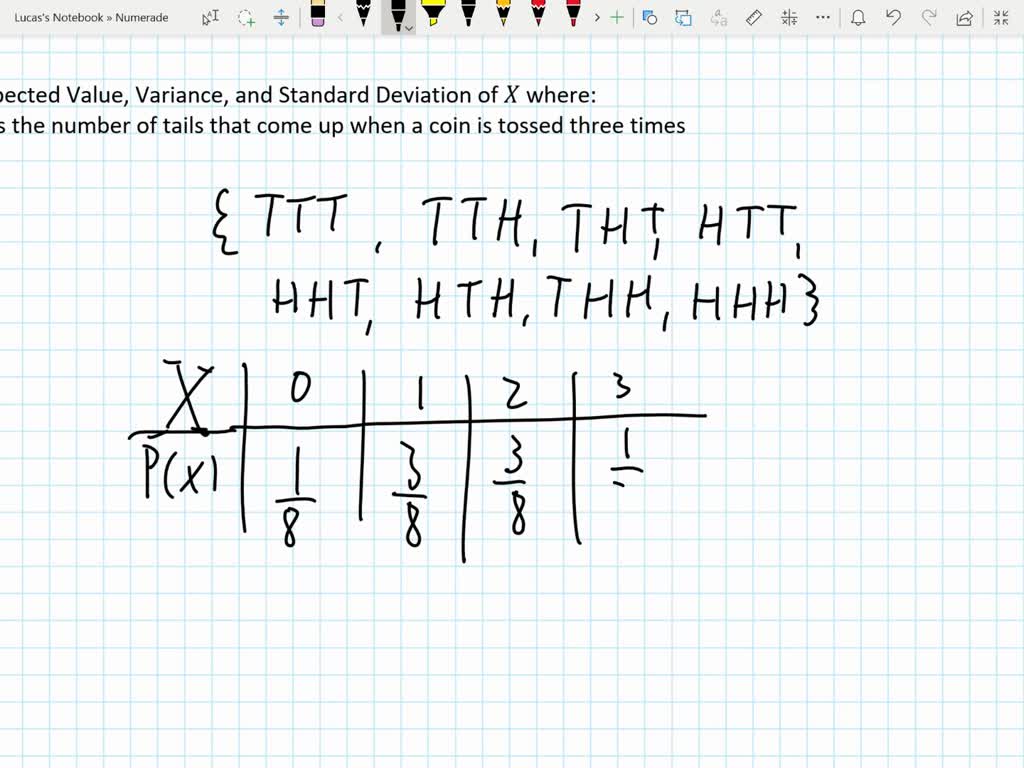 Lucas's Notebook » Numerade
pected Value, Variance, and Standard Deviation of X where:
s the number of tails that come up when a coin is tossed three times
{ TTT, TTH, THT, HTT,
HHT, HTH, THH, HHH}
X 0 1 2 3
P(x) 1/8 3/8 3/8 1/